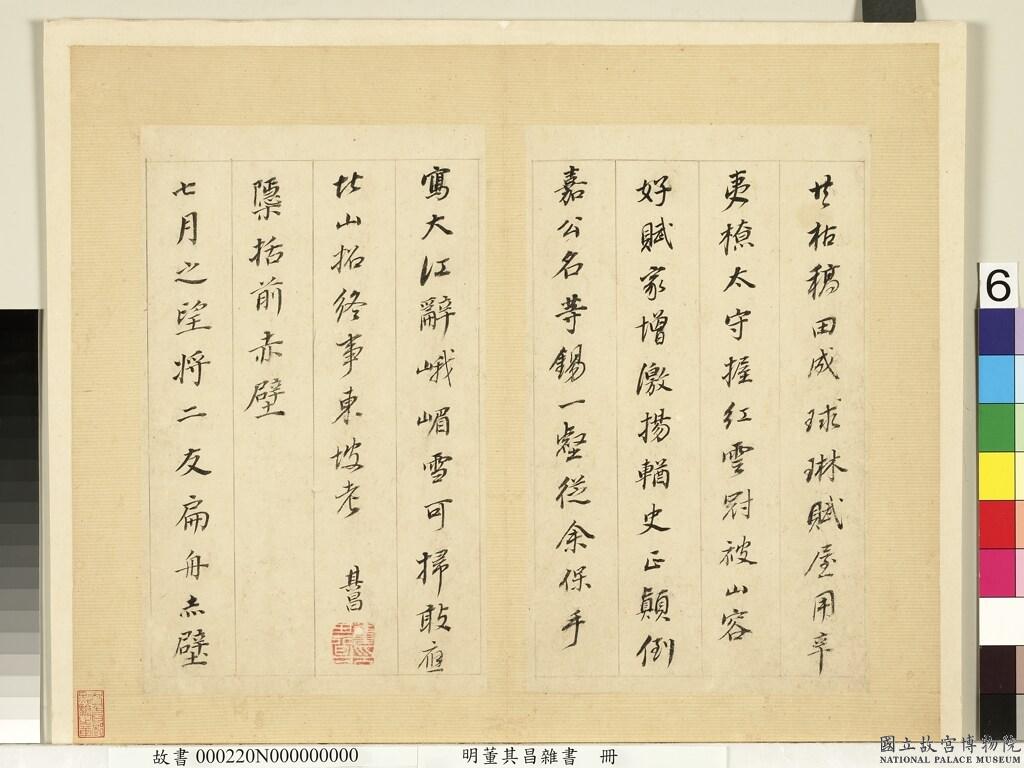 枯稿田成球琳賦屋用辛
夷橑太守握紅雲尉被山容
好賦家增激揚輶史正顛倒
嘉公名等錫一壑從余保手
寫大江辭峨嵋雪可掃敢應
北山招終事東坡老 其昌
檃括前赤壁
七月之望將二友扁舟赤壁
故書000220N000000000 明董其昌雜書 冊
國立故宮博物院
NATIONAL PALACE MUSEUM
6